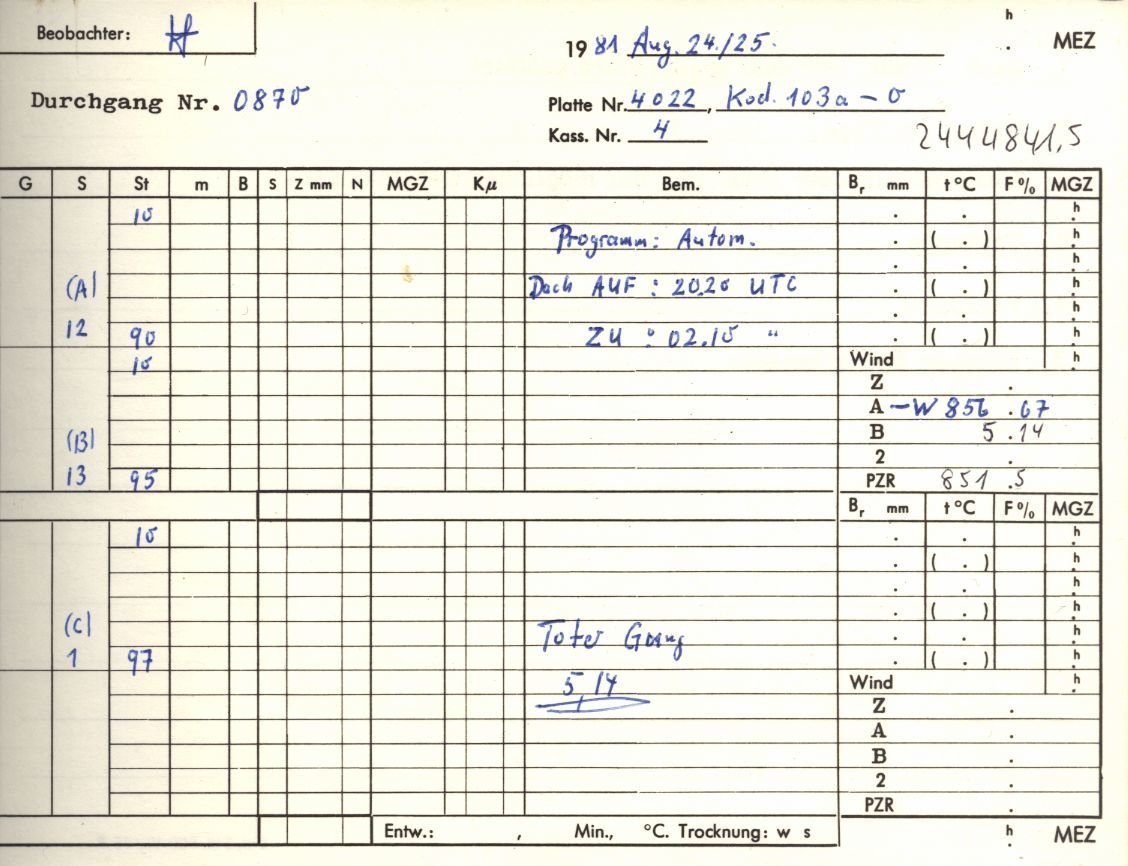 h
Beobachter: Kf
1981 Aug. 24./25. . MEZ
Durchgang Nr. 0870
Platte Nr. 4022, Kod. 103a-0
Kass. Nr. 4
2444841,5
G S St m B S Z mm N MGZ Kµ Bem. Br mm t °C F % MGZ
10 . . h.
Programm: Autom. . ( . ) h.
. . h.
(A) Dach AUF : 20.20 UTC . ( . ) h.
. . h.
12 90 ZU : 02.10 " . ( . ) h.
10 Wind h.
Z .
A -W 856 .67
(B) B 5 .14
2 .
13 95 PZR 851 .5
Br mm t °C F % MGZ
10 . . h.
. ( . ) h.
. . h.
. ( . ) h.
(C) Toter Gang . . h.
1 97 . ( . ) h.
5,14 Wind h.
Z .
A .
B .
2 .
PZR .
Entw.: , Min., °C. Trocknung: w s h. MEZ